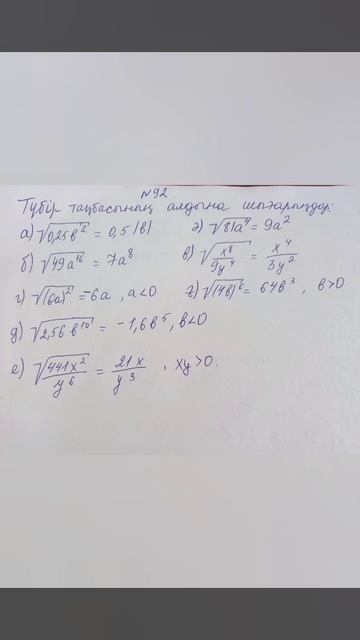 №92
Түбір таңбасының алдына шығарыңдар:
а) √0,25в² = 0,5|в|
ә) √81а⁴ = 9а²
б) √49а¹⁶ = 7а⁸
в) √x⁸/9y⁴ = x⁴/3y²
г) √(6а)² = -6а , а<0
ғ) √(4в)⁶ = 64в³ , в>0
д) √2,56 в¹⁰ = -1,6в⁵ , в<0
е) √441x²/y⁶ = 21x/y³ , xy>0.